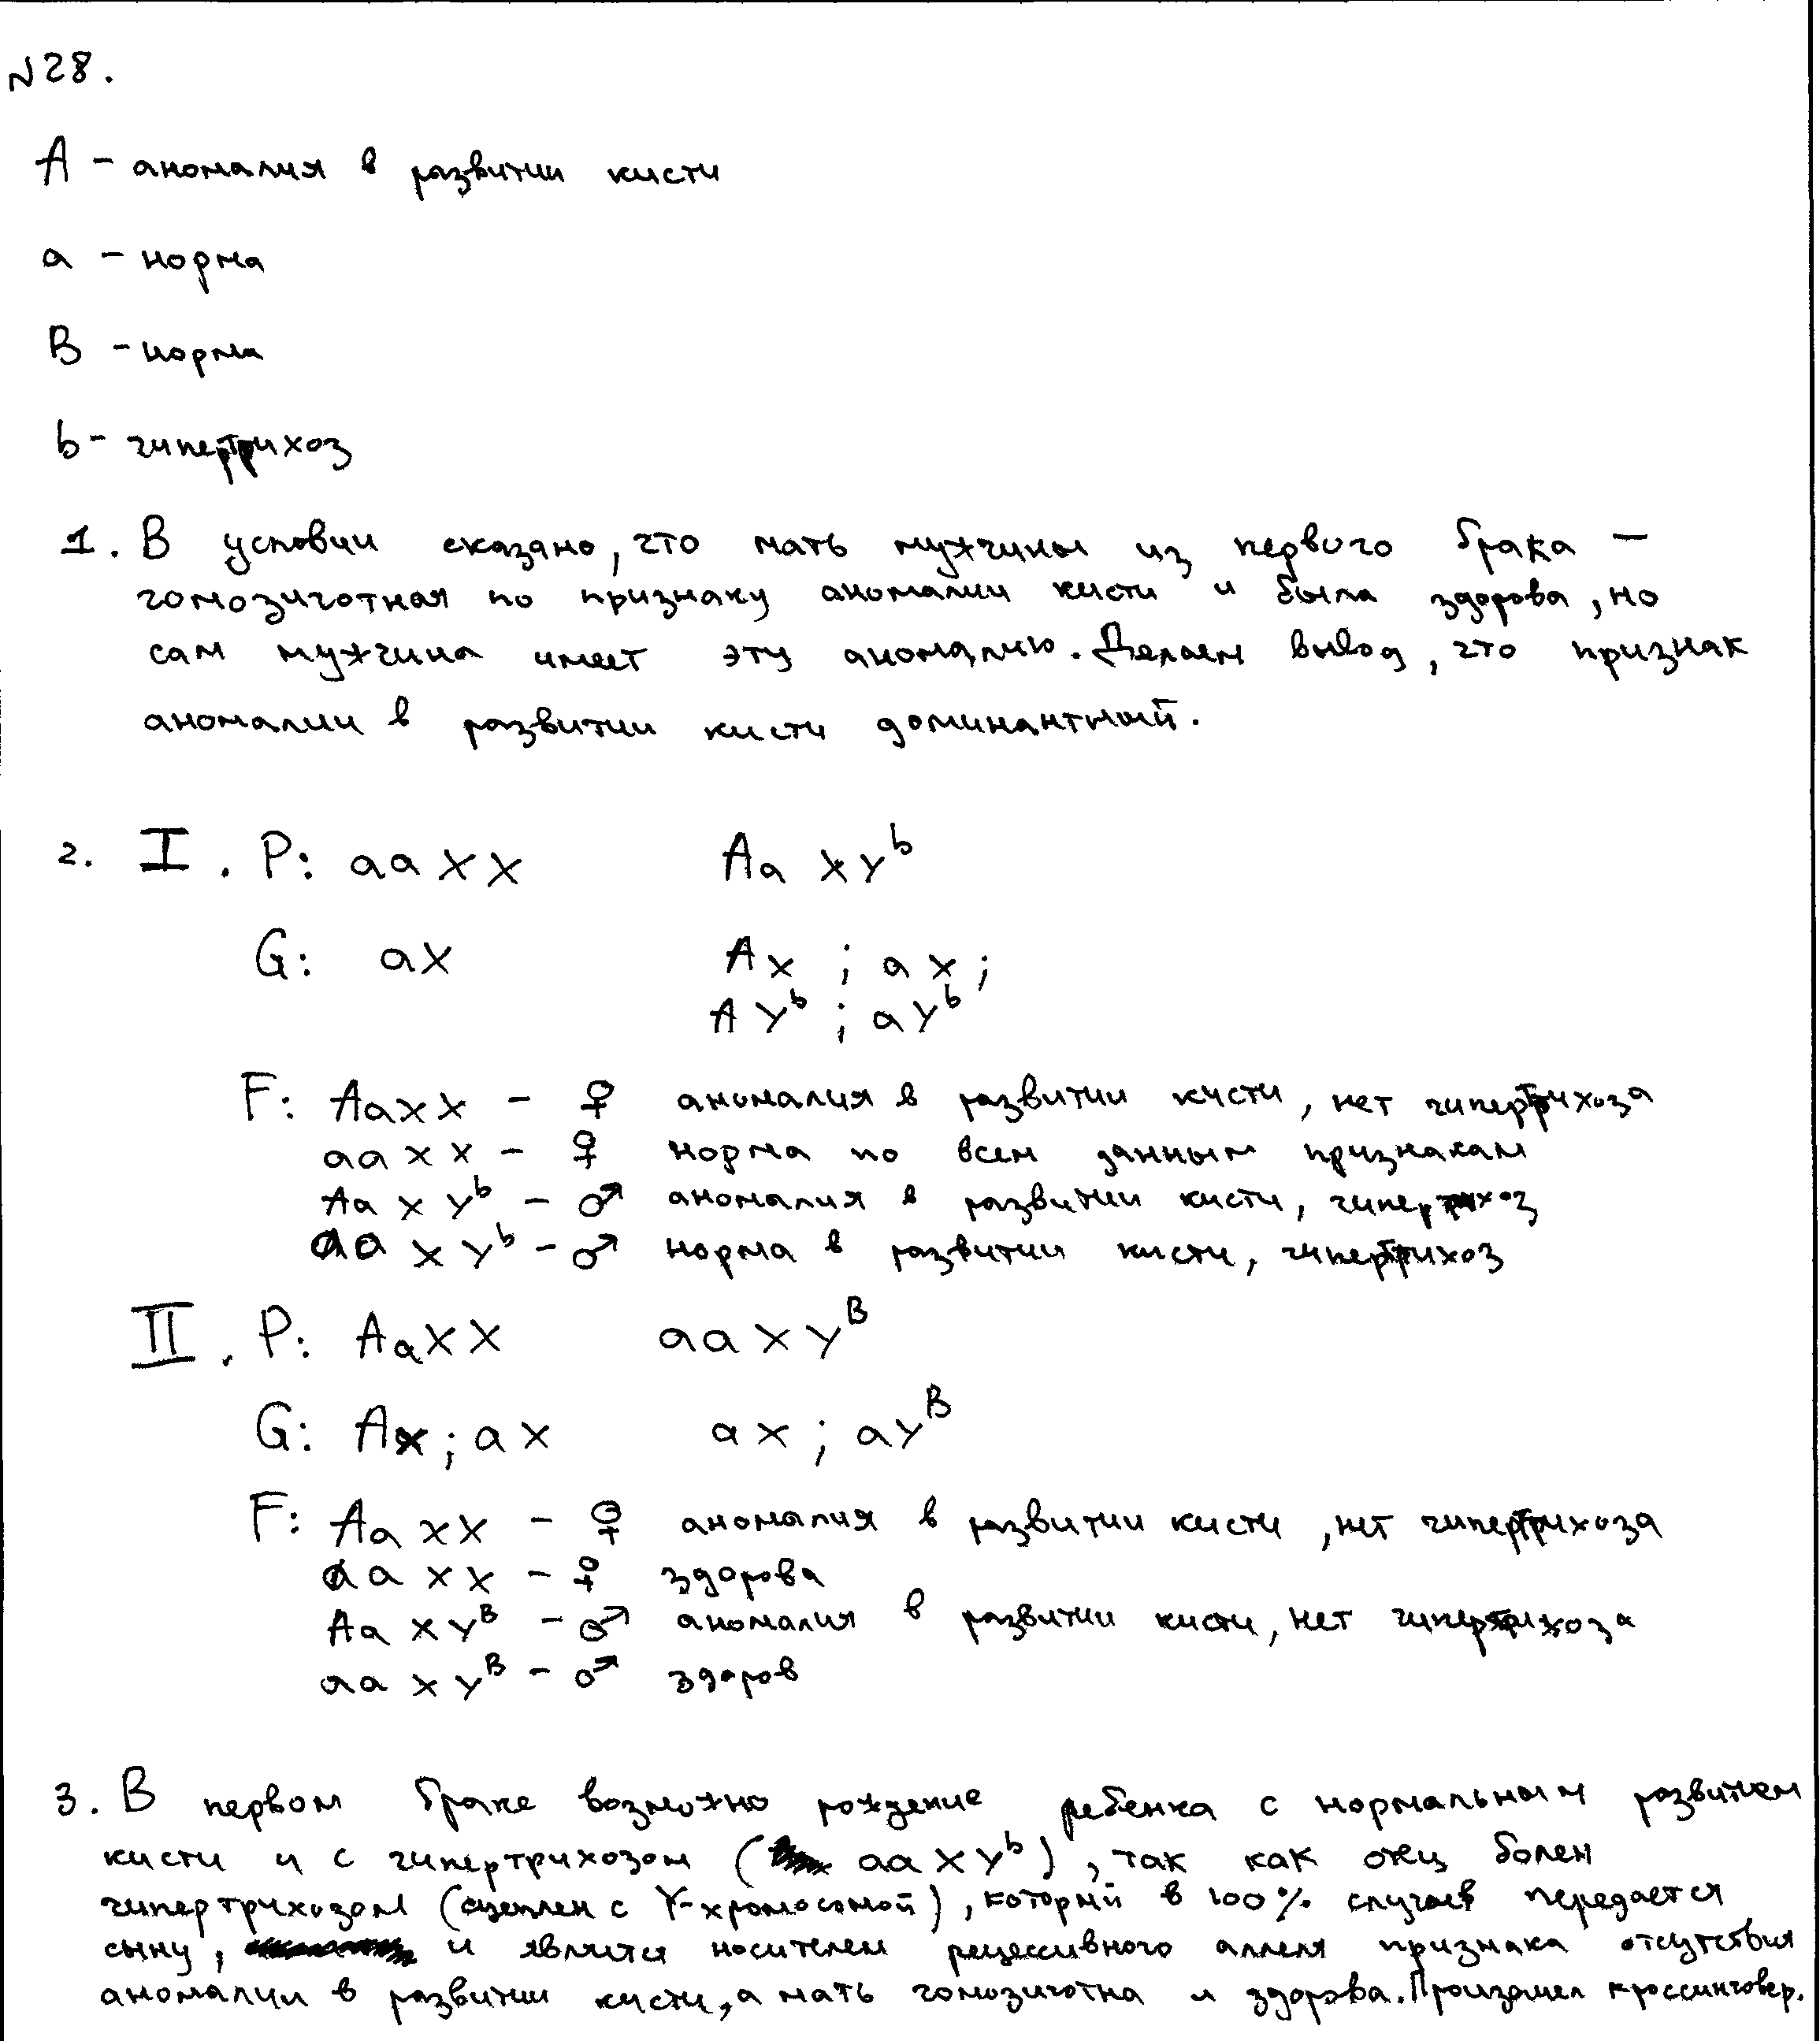 №28.
A - аномалия в развитии кисти
a - норма
B - норма
b - гипертрихоз
1. В условии сказано, что мать мужчины из первого брака –
гомозиготная по признаку аномалии кисти и была здорова, но
сам мужчина имеет эту аномалию. Делаем вывод, что признак
аномалии в развитии кисти доминантный.
2. I. P: aaXX AaXY^b
G: aX AX ; aX ;
AY^b ; aY^b
F: AaXX - ♀ аномалия в развитии кисти, нет гипертрихоза
aaXX - ♀ норма по всем данным признакам
AaXY^b - ♂ аномалия в развитии кисти, гипертрихоз
aaXY^b - ♂ норма в развитии кисти, гипертрихоз
II. P: AaXX aaXY^B
G: AX; aX aX ; aY^B
F: AaXX - ♀ аномалия в развитии кисти, нет гипертрихоза
aaXX - ♀ здорова
AaXY^B - ♂ аномалия в развитии кисти, нет гипертрихоза
aaXY^B - ♂ здоров
3. В первом браке возможно рождение ребенка с нормальным развитием
кисти и с гипертрихозом (aaXY^b), так как отец болен
гипертрихозом (сцеплен с Y-хромосомой), который в 100% случаев передается
сыну, и является носителем рецессивного аллеля признака отсутствия
аномалии в развитии кисти, а мать гомозиготна и здорова. Произошел кроссинговер.